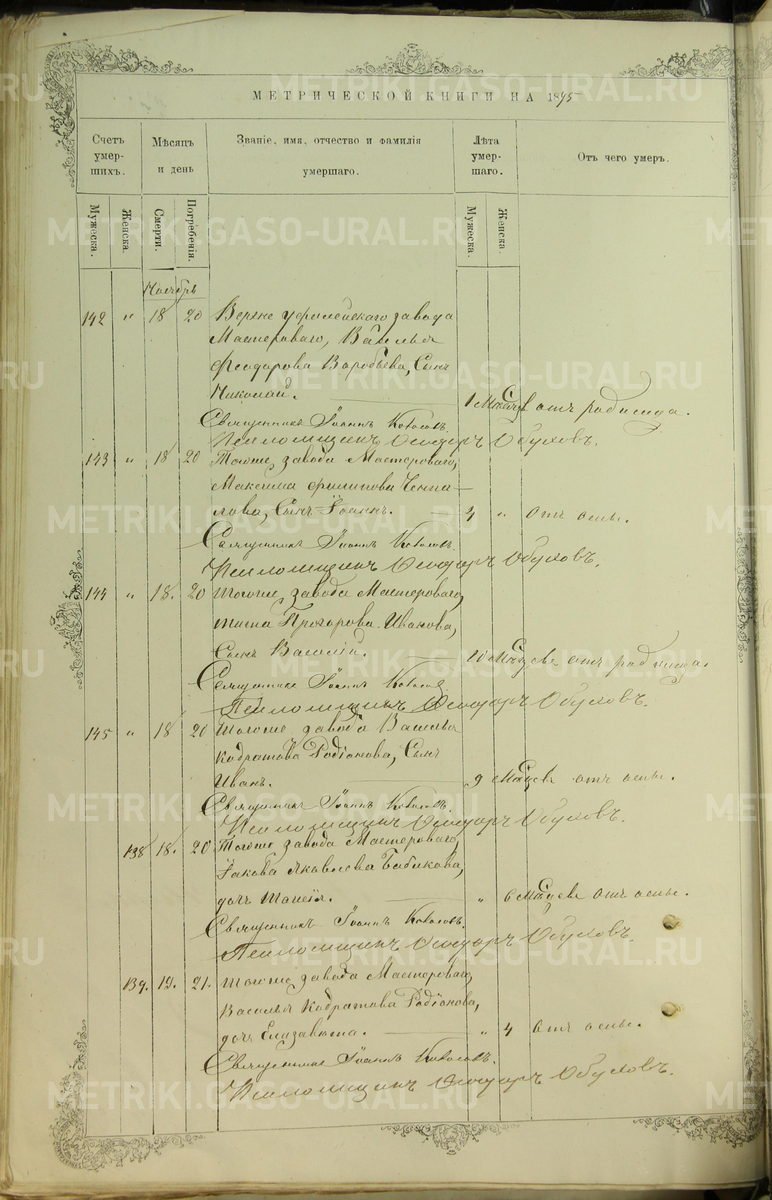 МЕТРИЧЕСКОЙ КНИГИ НА 1875
Счетъ умершихъ.
Мѣсяцъ и день
Званіе, имя, отчество и фамилія умершаго.
Лѣта умершаго.
Отъ чего умеръ.
Мужеска.
Женска.
Смерти.
Погребенія.
Мужеска.
Женска.
Ноябрь
142 " 18 20 Верхне уфалейскаго завода
Мастероваго, Василья
Феодорова Воробьева, Сынъ
Николай.
1 Мѣсяц отъ родимца.
Священникъ Іоаннъ
Псаломщикъ Ѳеодоръ Обуховъ.
143 " 18 20 Тогоже завода Мастероваго,
Максима Филипова
Сынъ Іоаннъ. 4 " отъ оспы.
Священникъ Іоаннъ
Псаломщикъ Ѳеодоръ Обуховъ.
144 " 18. 20 Тогоже завода Мастероваго,
Тита Прохорова Иванова,
Сынъ Василій. 10 Мѣсяцев отъ родимца.
Священникъ Іоаннъ
Псаломщикъ Ѳеодоръ Обуховъ.
145 " 18 20 Тогоже завода Василья
Кодратова Родіонова, Сынъ
Иванъ. 9 Мѣсяцев отъ оспы.
Священникъ Іоаннъ
Псаломщикъ Ѳеодоръ Обуховъ.
138 18. 20 Тогоже завода Мастероваго,
Іакова Яковлева Бабикова,
дочь Таисія. " 6 Мѣсяцев отъ оспы.
Священникъ Іоаннъ
Псаломщикъ Ѳеодоръ Обуховъ.
139. 19. 21. Тогоже завода Мастероваго,
Василья Кодратова Родіонова,
дочь Елизавета. " 4 отъ оспы.
Священникъ Іоаннъ
Псаломщикъ Ѳеодоръ Обуховъ.
METRIKI.GASO-URAL.RU